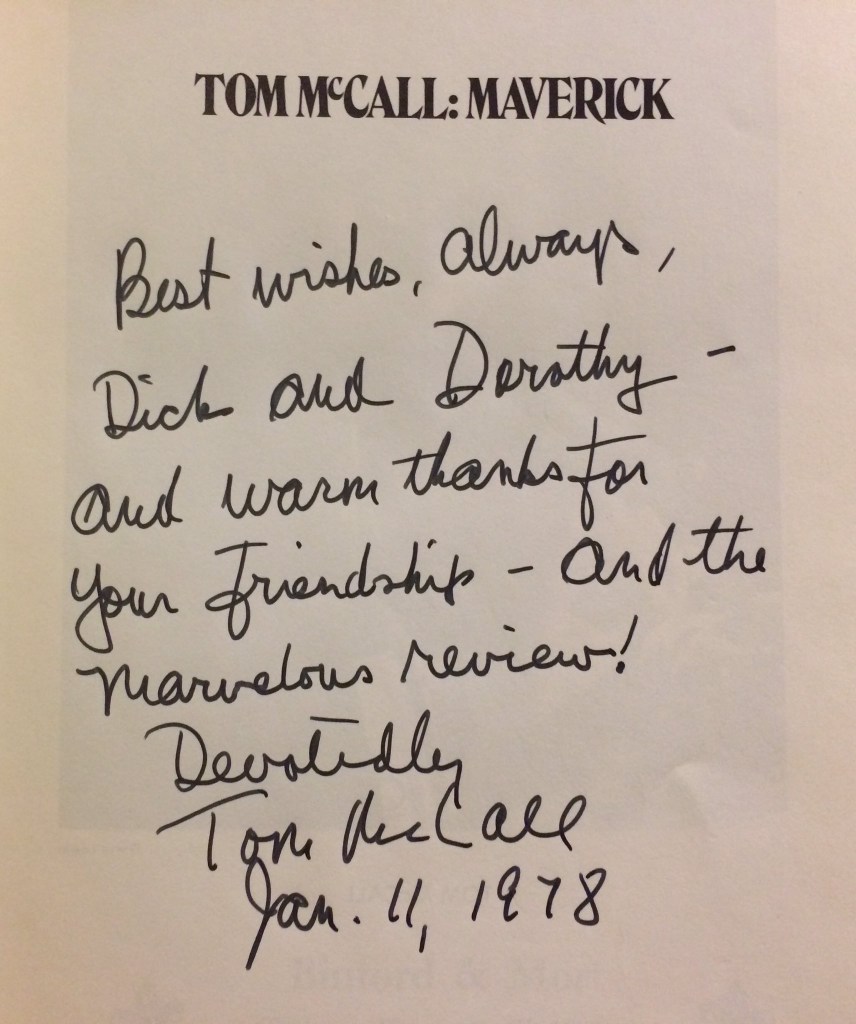 TOM McCALL: MAVERICK
Best wishes, always,
Dick and Dorothy -
and warm thanks for
your friendship - and the
marvelous review!
Devotedly
Tom McCall
Jan. 11, 1978